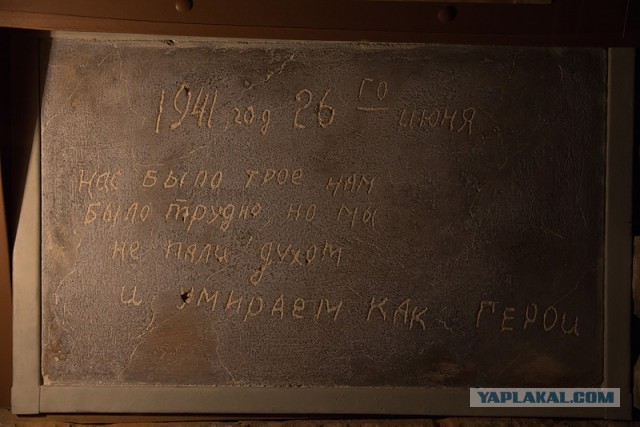 1941 год 26 го июня
нас было трое нам
было трудно, но мы
не пали духом
и умираем как герои
YAPLAKAL.COM